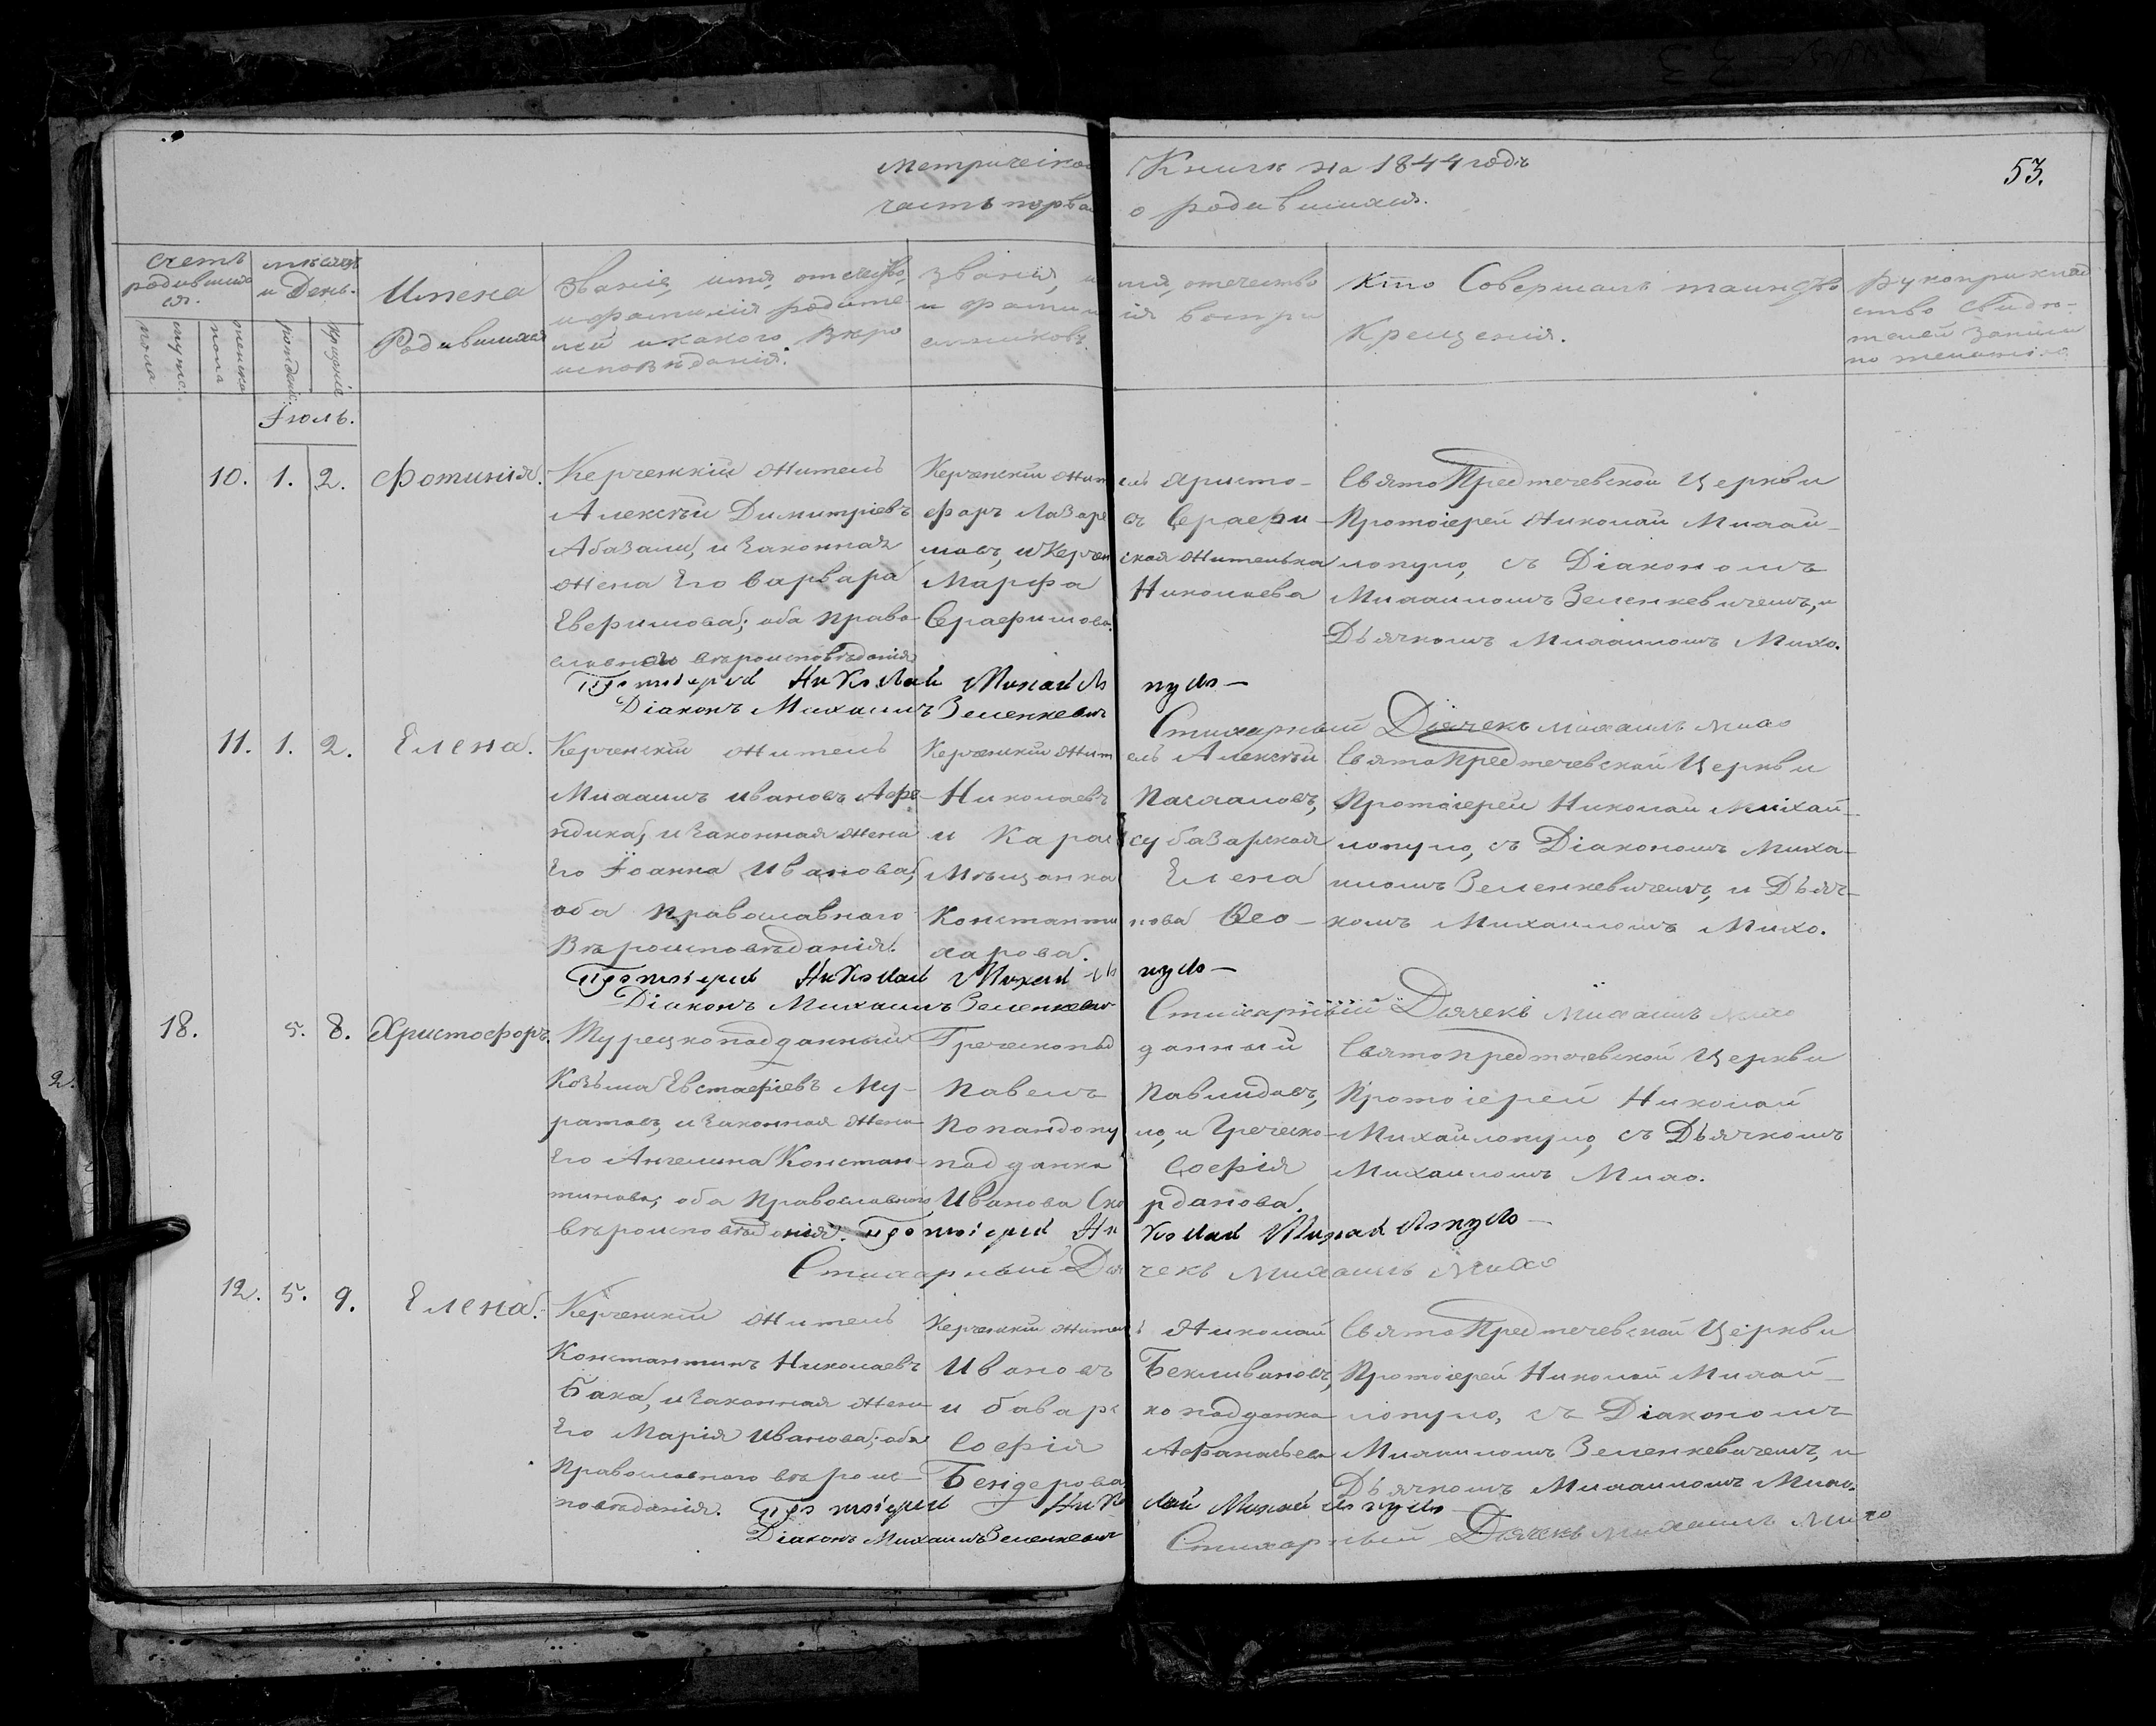 Метрической Книги на 1844 годъ
53.
часть первая о родившихся.
счетъ родившихся.
мужс: пола
женска пола
мѣсяцъ и День.
рожденіе:
крещеніе
Имена Родившихся
Званіе, имя, отечество, и фамилія родителей и какого вѣроисповѣданія.
Званія, имя, отечество и фамилія воспріемниковъ.
Кто Совершалъ таинство Крещенія.
Рукоприкладство свидѣтелей записи по желанію.
Іюль.
10. 1. 2. Фотинія.
Керченскій житель
Алексѣй Димитріевъ
Абазалы, и законная
жена Его Варвара
Евфимова; оба право-
славнаго вѣроисповѣданія
Керченскій житель Христо-
форъ Лазаревъ Серафи-
мовъ, и Керченская жителька
Марфа Николаева
Серафимова.
Свято Предтечевской Церкви
Протоіерей Николай Михай-
лопуло, съ Діакономъ
Михаиломъ Зеленкевичемъ, и
Дьячкомъ Михаиломъ Михо.
Протоіерей Николай Михайлопуло —
Діаконъ Михаилъ Зеленкевичъ
Стихарный Дячекъ Михаилъ Михо
11. 1. 2. Елена.
Керченскій житель
Михаилъ Ивановъ Афе-
ндика, и законная жена
Его Іоанна Иванова;
оба Православнаго
Вѣроисповѣданія.
Керченскій житель Алексѣй
Николаевъ Пасхаловъ,
и Карасубазарская
Мѣщанка Елена
Константинова Ѳео-
харова.
Свято Предтечевской Церкви
Протоіерей Николай Михай-
лопуло, съ Діакономъ Миха-
иломъ Зеленкевичемъ, и Дьяч-
комъ Михаиломъ Михо.
Протоіерей Николай Михайлопуло —
Діаконъ Михаилъ Зеленкевичъ
Стихарный Дячекъ Михаилъ Михо
18. 5. 8. Христофоръ.
Турецкоподданный
Козьма Евстафіевъ Му-
ратовъ, и законная жена
Его Ангелина Констан-
тинова; оба Православнаго
вѣроисповѣданія.
Греческоподданный
Павелъ Павлидовъ,
Попандопуло, и Греческо-
подданка Софія
Иванова Скорданова.
Свято Предтечевской Церкви
Протоіерей Николай
Михайлопуло, съ Дьячкомъ
Михаиломъ Михо.
Протоіерей Николай Михайлопуло —
Стихарный Дячекъ Михаилъ Михо
12. 5. 9. Елена.
Керченскій житель
Константинъ Николаевъ
Бака, и законная жена
Его Марія Иванова; оба
Православнаго вѣроис-
повѣданія.
Керченскій житель Николай
Ивановъ Бекливановъ,
и баварскоподданка
Софія Афанасьева
Бендерова
Свято Предтечевской Церкви
Протоіерей Николай Михай-
лопуло, съ Діакономъ
Михаиломъ Зеленкевичемъ, и
Дьячкомъ Михаиломъ Михо.
Протоіерей Николай Михайлопуло —
Діаконъ Михаилъ Зеленкевичъ
Стихарный Дячекъ Михаилъ Михо